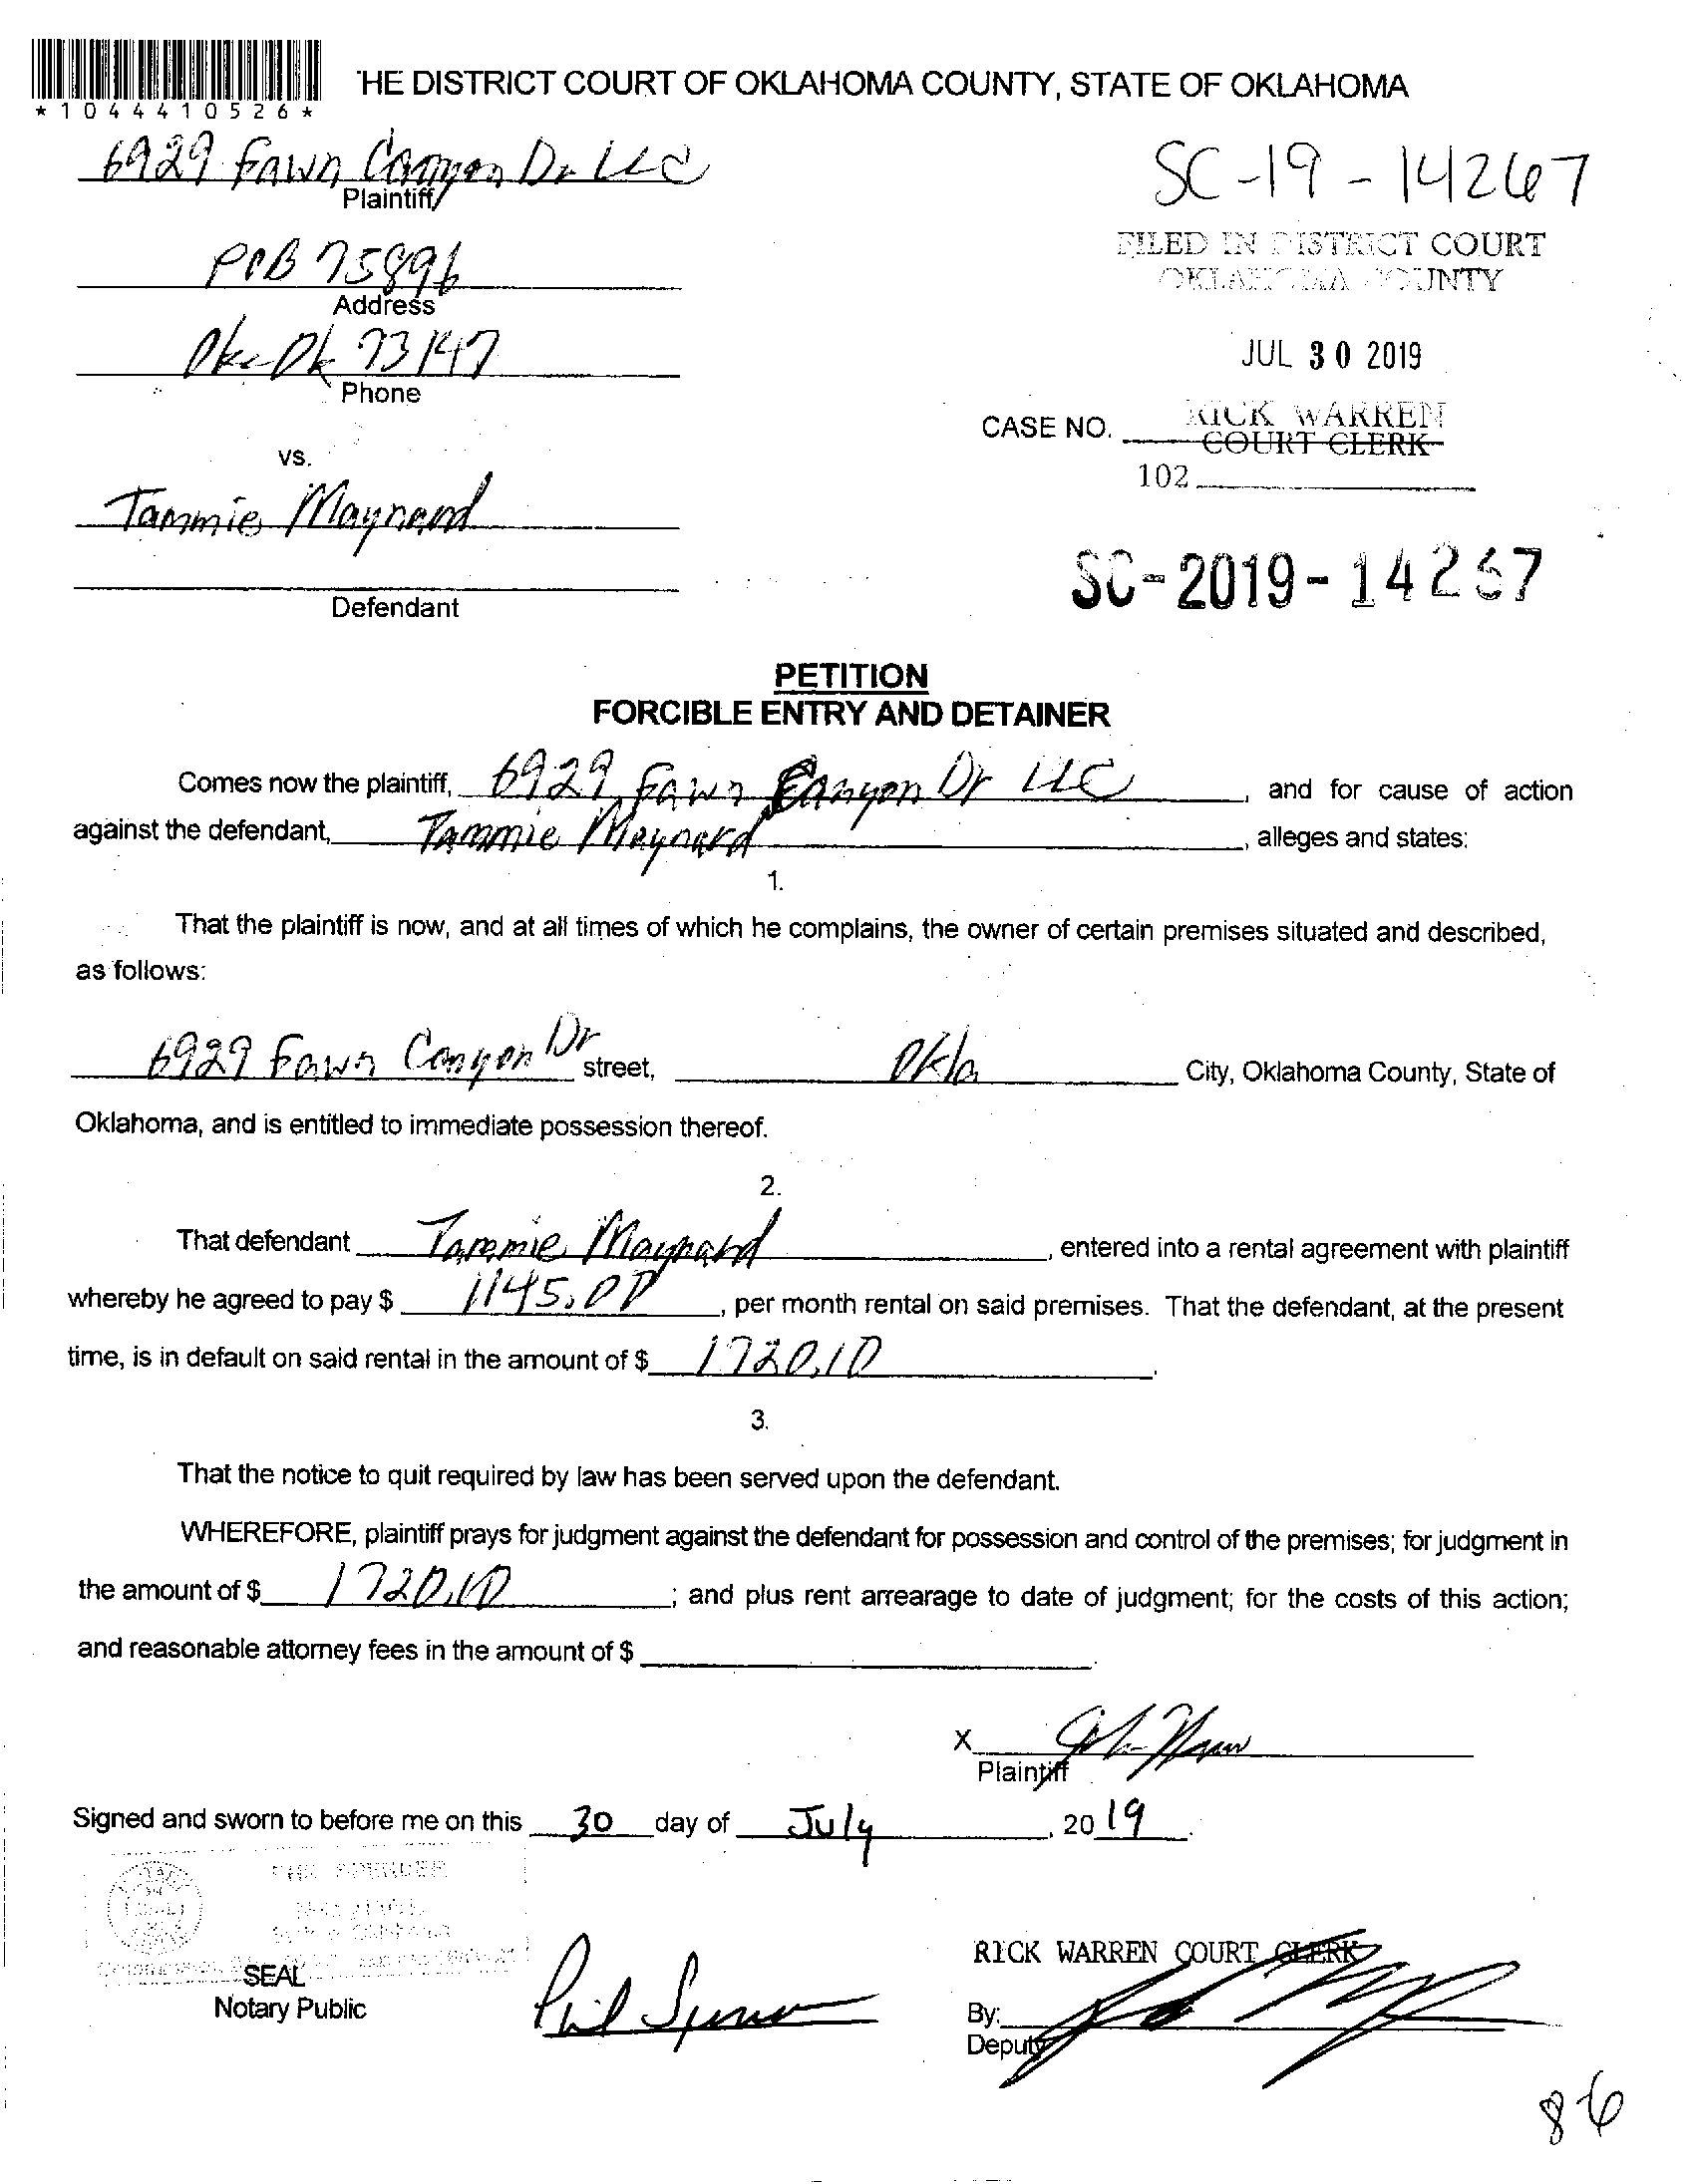 *1044410526*
HE DISTRICT COURT OF OKLAHOMA COUNTY, STATE OF OKLAHOMA
6929 Fawn Canyon Dr LLC
Plaintiff
SC-19-14267
POB 75896
Address
FILED IN DISTRICT COURT
OKLAHOMA COUNTY
Okc Ok 73147
Phone
JUL 30 2019
CASE NO.
RICK WARREN
COURT CLERK
102
vs.
Tammie Maynard
Defendant
SC-2019-14267
PETITION
FORCIBLE ENTRY AND DETAINER
Comes now the plaintiff, 6929 Fawn Canyon Dr LLC, and for cause of action
against the defendant, Tammie Maynard, alleges and states:
1.
That the plaintiff is now, and at all times of which he complains, the owner of certain premises situated and described,
as follows:
6929 Fawn Canyon Dr street, Okla City, Oklahoma County, State of
Oklahoma, and is entitled to immediate possession thereof.
2.
That defendant Tammie Maynard, entered into a rental agreement with plaintiff
whereby he agreed to pay $ 1145.00, per month rental on said premises. That the defendant, at the present
time, is in default on said rental in the amount of $ 1720.10.
3.
That the notice to quit required by law has been served upon the defendant.
WHEREFORE, plaintiff prays for judgment against the defendant for possession and control of the premises; for judgment in
the amount of $ 1720.10; and plus rent arrearage to date of judgment; for the costs of this action;
and reasonable attorney fees in the amount of $
X
Plaintiff
Signed and sworn to before me on this 30 day of July, 2019.
SEAL
Notary Public
Phil Spencer
RICK WARREN COURT CLERK
By:
Deputy
86